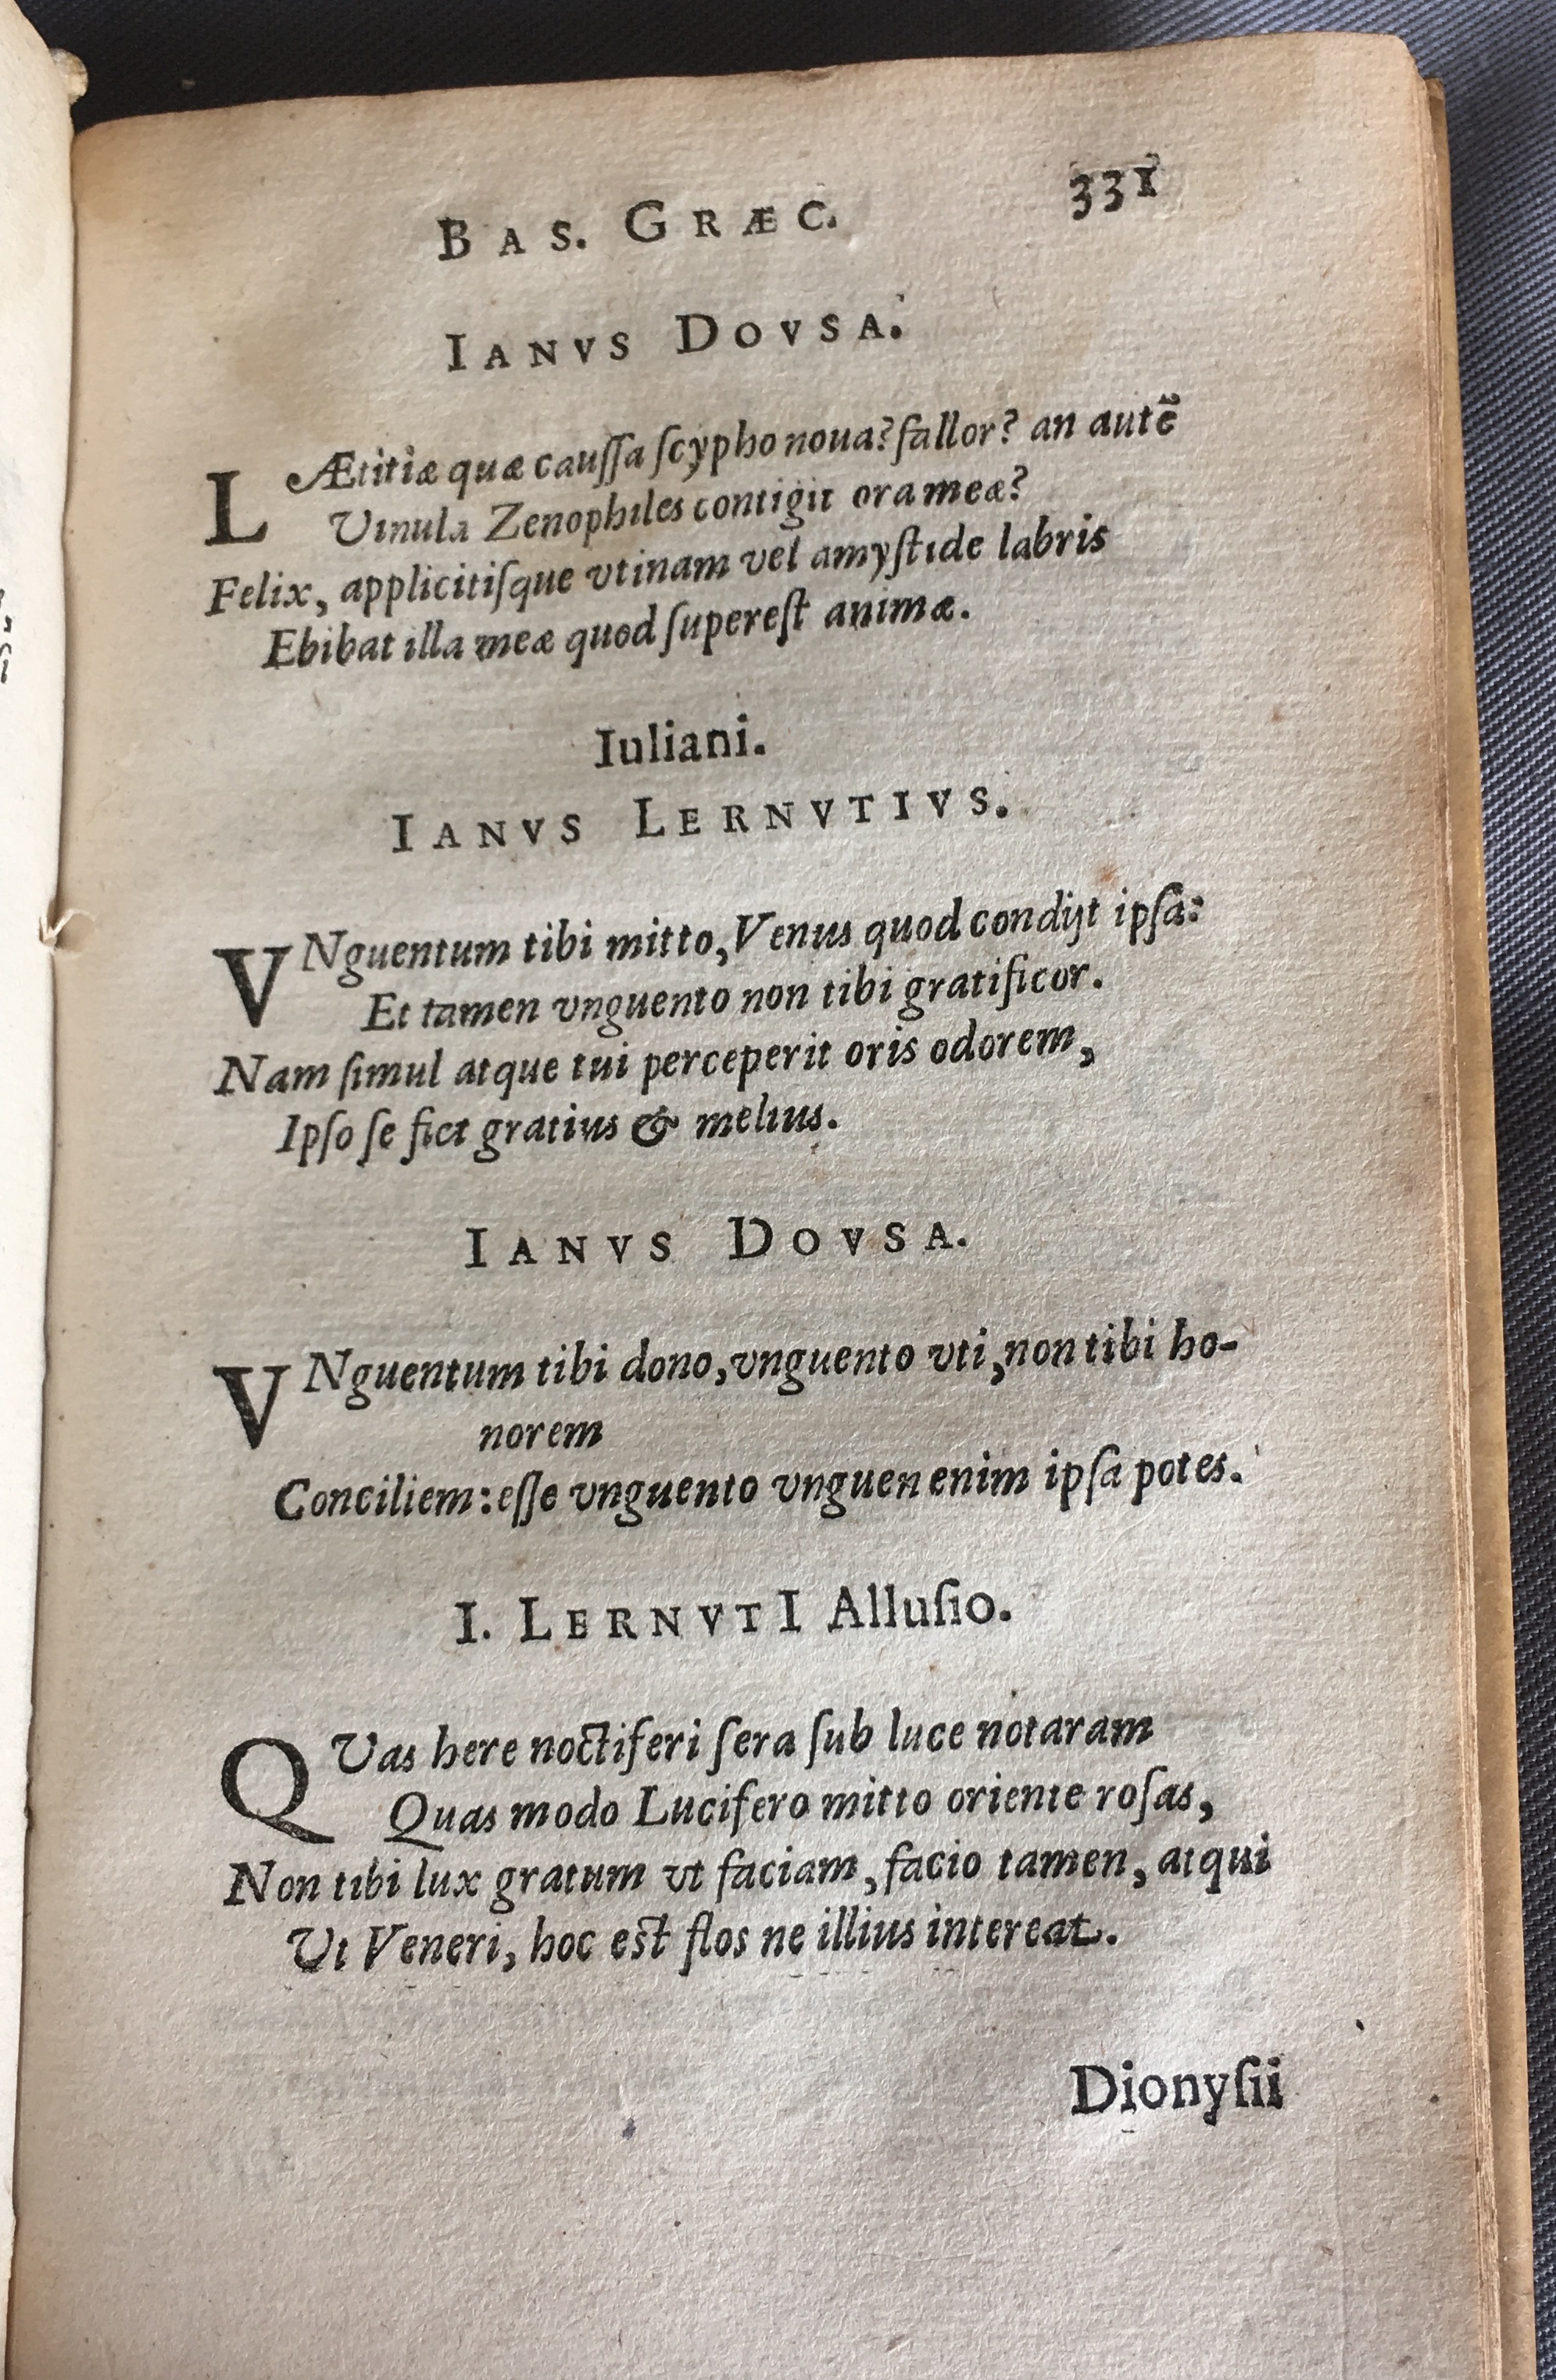 BAS. GRÆC. 331
IANVS DOVSA.
LÆtitiæ quæ cauſſa ſcypho noua? fallor? an autẽ
Vinula Zenophiles contigit ora meæ?
Felix, applicitiſque vtinam vel amyſtide labris
Ebibat illa meæ quod ſupereſt animæ.
Iuliani.
IANVS LERNVTIVS.
VNguentum tibi mitto, Venus quod condijt ipſa:
Et tamen vnguento non tibi gratificor.
Nam ſimul atque tui perceperit oris odorem,
Ipſo ſe fiet gratius & melius.
IANVS DOVSA.
VNguentum tibi dono, vnguento vti, non tibi ho-
norem
Conciliem: eſſe vnguento vnguen enim ipſa potes.
I. LERNVTI Alluſio.
QVas here noctiferi ſera ſub luce notaram
Quas modo Lucifero mitto oriente roſas,
Non tibi lux gratum vt faciam, facio tamen, atqui
Vt Veneri, hoc eſt flos ne illius intereat.
Dionyſii